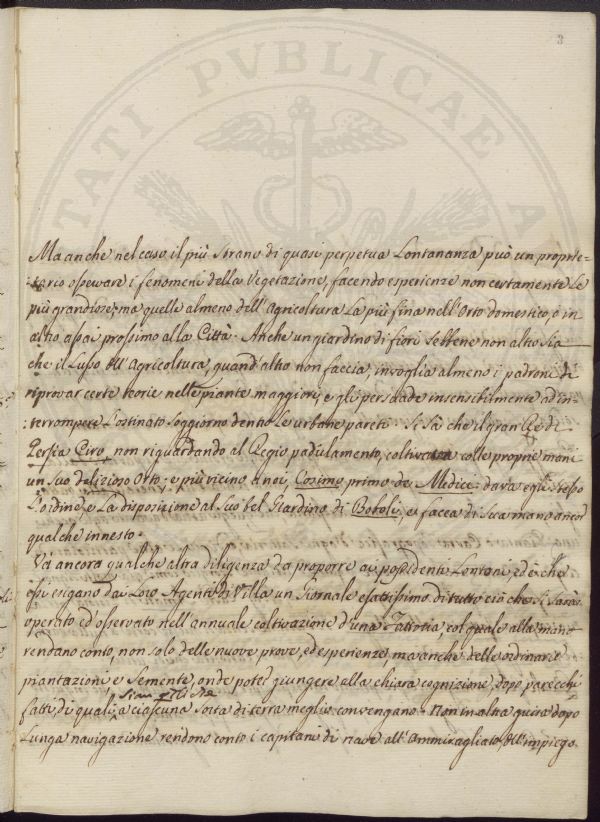 3
TATI PVBLICAE A
Ma anche nel caso il più strano di quasi perpetua Lontananza può un proprie=
=tario osservare i fenomeni della Vegetazione, facendo esperienze non certamente Le
più grandiose; ma quelle almeno dell'Agricoltura La più fina nell'Orto domestico, o in
altro assai prossimo alla Città. Anche un giardino di fiori sebbene non altro sia
che il Lusso dell'Agricoltura, quand'altro non faccia, invoglia almeno i padroni di
riprovar certe teorie nelle piante maggiori, e gli persuade insensibilmente ad in=
=terrompere L'ostinato soggiorno dentro Le urbane pareti. Si sà che il gran Re di
Persia Ciro, non riguardando al Regio paludamento, coltivava colle proprie mani
un suo delizioso Orto; e più vicino a noi, Cosimo primo de Medici dava egli stesso
L'ordine, e La disposizione al suo bel Giardino di Boboli, e facea di sua mano ancor
qualche innesto.
Và ancora qualche altra diligenza da proporre ai possidenti Lontani, ed è che
essi esigano da Loro Agenti di Villa un Giornale esattissimo di tutto ciò che si sarà
operato ed osservato nell'annuale coltivazione d'una Fattoria, col quale alla mano
rendano conto, non solo delle nuove prove, ed esperienze, ma anche delle ordinarie
piantazioni e Semente, onde poter giungere alla chiara cognizione, dopo parecchi
fatti, di quali a ciascuna Sorta di terra meglio convengano. Non in altra guisa dopo
Lunga navigazione rendono conto i capitani di nave all'Ammiragliato dell'impiego